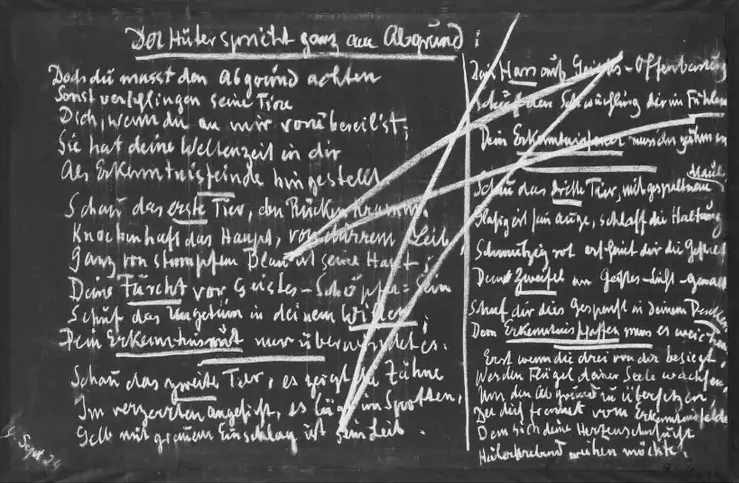 Der Hüter spricht ganz am Abgrund:
Doch du musst den Abgrund achten
Sonst verschlingen seine Tiere
Dich, wenn du an mir vorübereil'st;
Sie hat deine Weltenzeit in dir
Als Erkenntnisfeinde hingestellt
Schau das erste Tier, den Rücken krumm.
Knochenhaft das Haupt, von dürrem Leib
Ganz von stumpfem Blau ist seine Haut;
Deine Furcht vor Geistes-Schöpfer-Sein
Schuf das Ungetüm in deinem Willen;
Dein Erkenntnismut nur überwindet es.
Schau das zweite Tier, es zeigt die Zähne
Im verzerrten Angesicht, es lügt im Spotten,
Gelb mit grauem Einschlag ist sein Leib.
Sept 24
Dein Hass auf Geistes-Offenbarung
Schuf den Schwächling dir im Fühlen
Dein Erkenntnisfeuer muss ihn zähmen
Schau das dritte Tier, mit gespaltnem
Maul,
Glasig ist sein Auge, schlaff die Haltung
Schmutzig rot erscheint dir die Gestalt
Dein Zweifel an Geistes-Licht-Gewalt
Schuf dir dies Gespenst in deinem Denken
Dem Erkenntnisschaffen muss es weichen
Erst wenn die drei von dir besiegt,
Werden Flügel deiner Seele wachsen,
Um den Abgrund zu übersetzen,
Der dich trennet vom Erkenntnisfelde
Dem sich deine Herzenssehnsucht
Heilerstrebend weihen möchte.